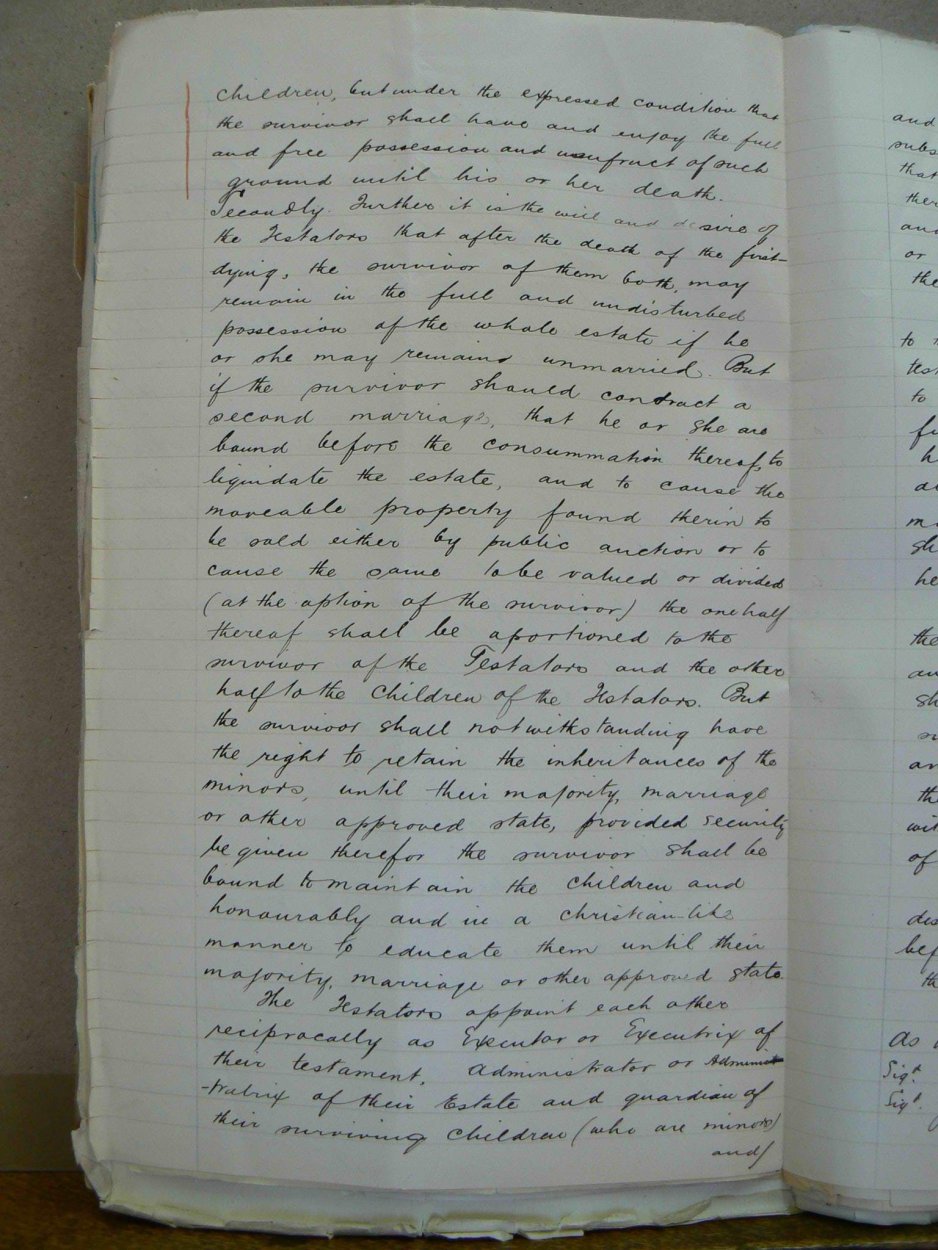 children, but under the expressed condition that
the survivor shall have and enjoy the full
and free possession and usufruct of such
ground until his or her death.
Secondly. Further it is the will and desire of
the Testators that after the death of the first-
dying, the survivor of them both, may
remain in the full and undisturbed
possession of the whole estate if he
or she may remain unmarried. But
if the survivor should contract a
second marriage, that he or she are
bound before the consummation thereof, to
liquidate the estate, and to cause the
moveable property found therin to
be sold either by public auction or to
cause the same to be valued or divided
(at the option of the survivor) the one half
thereof shall be aportioned to the
survivor of the Testators and the other
half to the children of the Testators. But
the survivor shall notwithstanding have
the right to retain the inheritances of the
minors, until their majority, marriage
or other approved state, provided security
be given therefor the survivor shall be
bound to maintain the children and
honourably and in a christian-like
manner to educate them until their
majority, marriage or other approved state
The Testators appoint each other
reciprocally as Executor or Executrix of
their testament, administrator or Adminis
-tratrix of their Estate and guardian of
their surviving children (who are minors)
and/
and
that
or
the
to
to
he
the
of
as
Sigd.
Sigd.